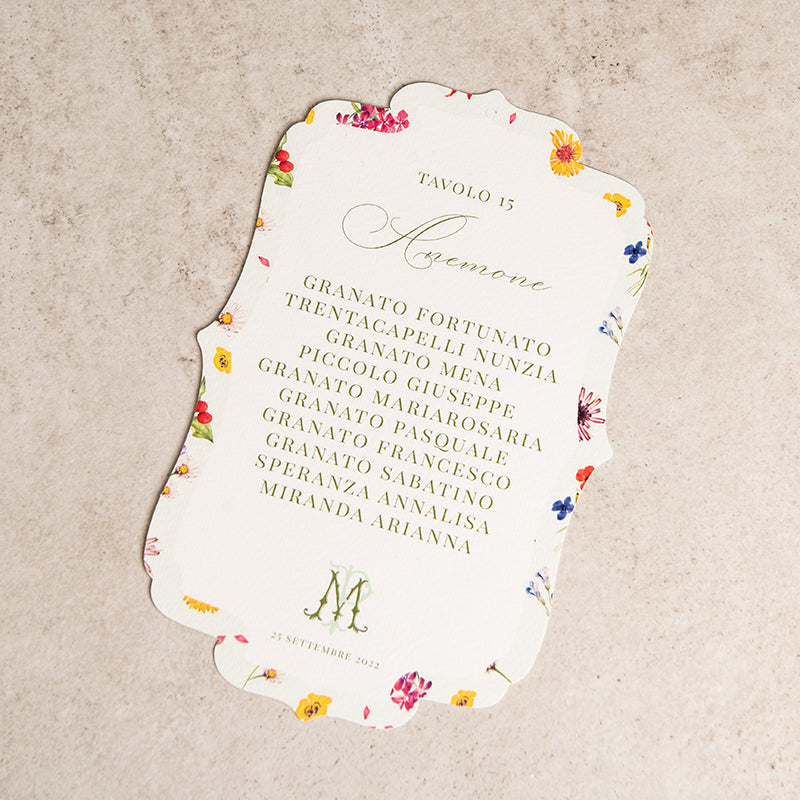 TAVOLO 15
Anemone
GRANATO FORTUNATO
TRENTACAPELLI NUNZIA
GRANATO MENA
PICCOLO GIUSEPPE
GRANATO MARIAROSARIA
GRANATO PASQUALE
GRANATO FRANCESCO
GRANATO SABATINO
SPERANZA ANNALISA
MIRANDA ARIANNA
MP
25 SETTEMBRE 2022